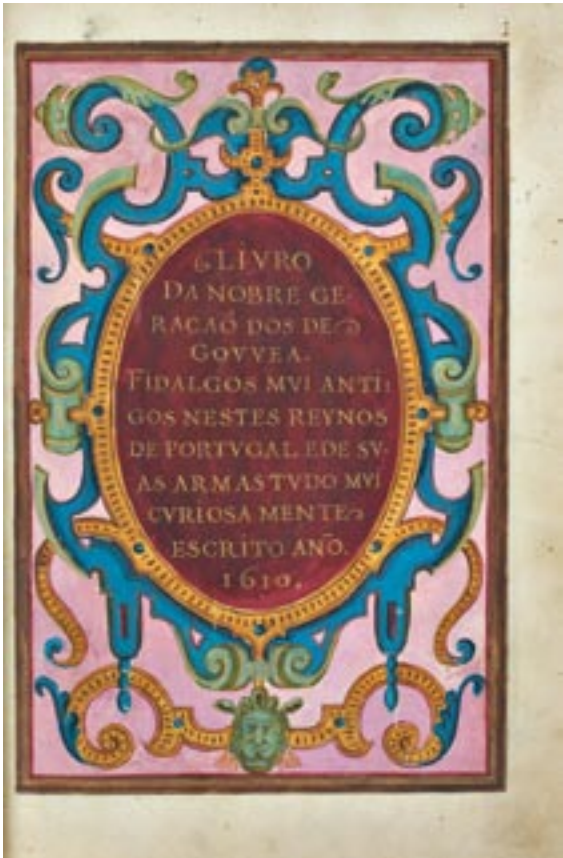 LIVRO
DA NOBRE GE-
RACAÕ DOS DE
GOVVEA.
FIDALGOS MVI ANTI:
GOS NESTES REYNOS
DE PORTVGAL E DE SV-
AS ARMAS TVDO MVI
CVRIOSA MENTE
ESCRITO AÑO.
1610.